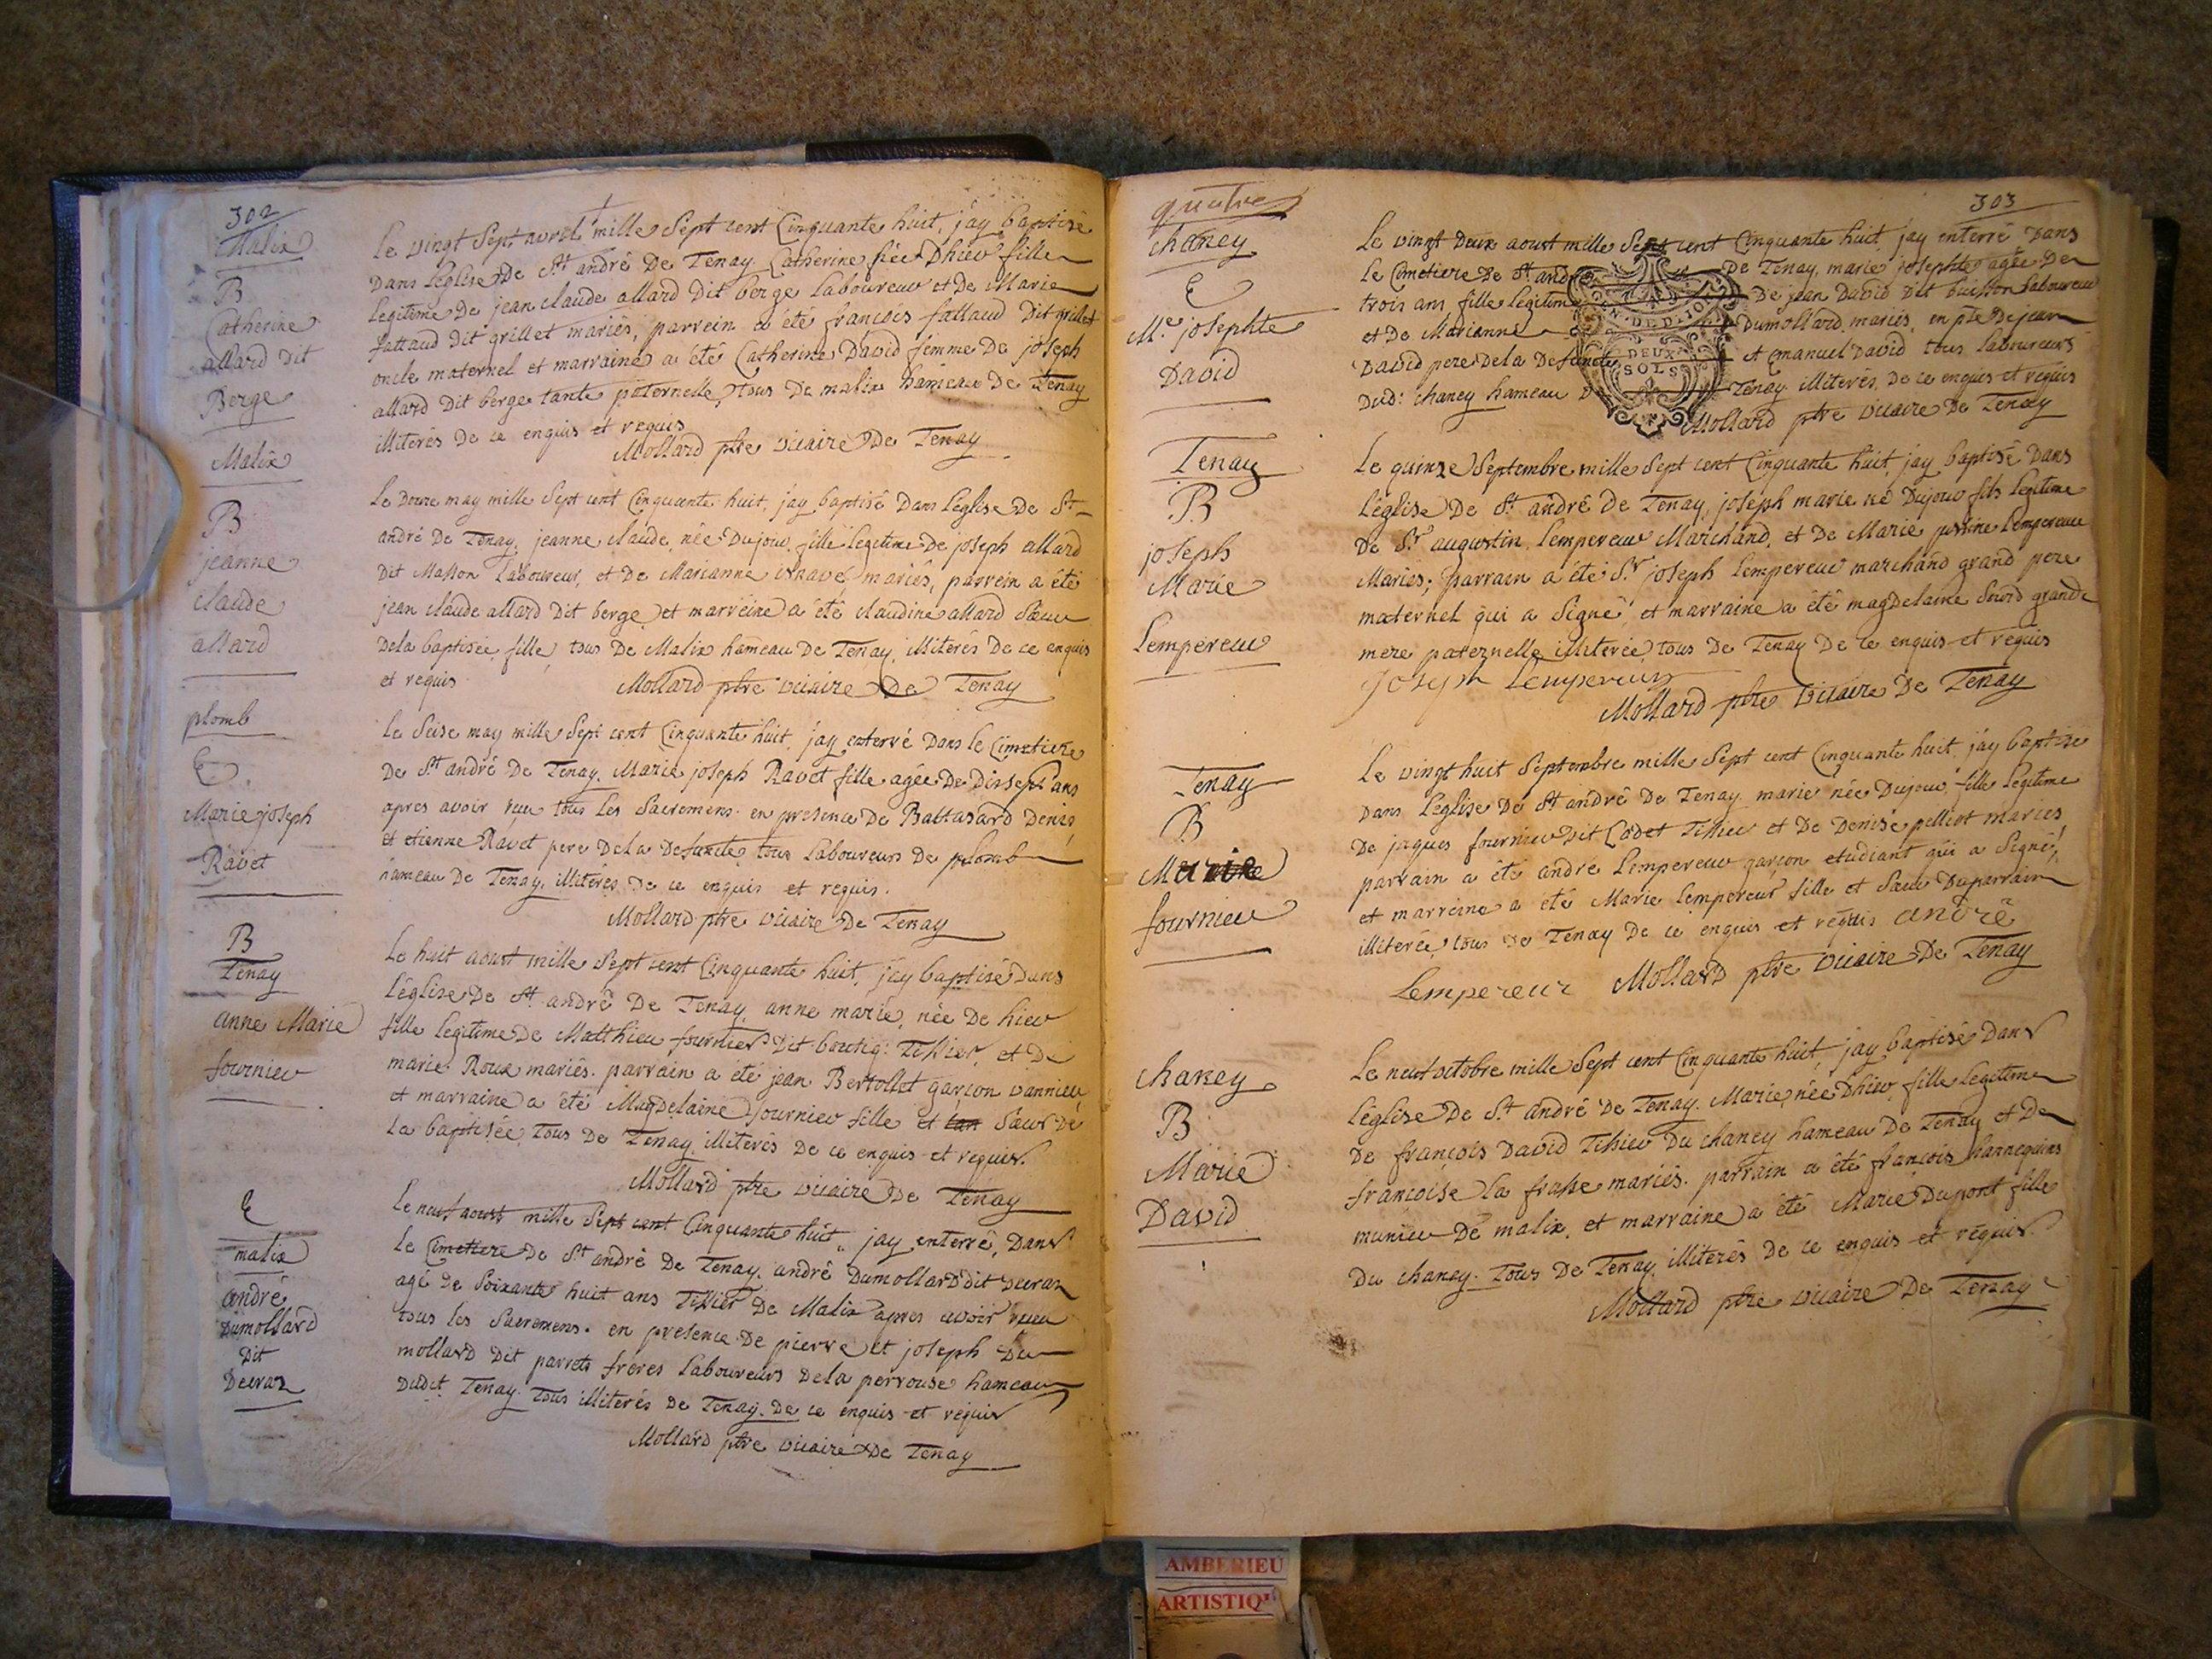 302
Malix
B
Catherine
allard dit
Berge
Le vingt Sept avril mille Sept cent Cinquante huit, j'ay baptisé
dans L'église de St. andré de Tenay Catherine née D'hier fille
legitime de jean claude allard dit berge Laboureur et de Marie
fattaud dit grillet mariés, parrein a été françois fallaud dit grillet
oncle maternel et marraine a été Catherine David femme de joseph
allard dit berge tante paternelle, tous de malix hameau de Tenay
illiterés de ce enquis et requis
Mollard ptre vicaire de Tenay
Malix
B
jeanne
claude
allard
Le douze may mille Sept cent Cinquante huit, j'ay baptisé dans L'église de St.
andré de Tenay, jeanne claude, née dujour, fille legitime de joseph allard
dit Masson Laboureur, et de Marianne mariés, parrein a été
jean claude allard dit berge et marreine a été claudine allard Sœur
dela baptisée, fille, tous de Malix hameau de Tenay, illiterés de ce enquis
et requis
Mollard ptre vicaire de Tenay
plomb
E
Marie joseph
Ravet
Le Seise may mille Sept cent Cinquante huit, j'ay enterré dans le Cimetiere
de St andré de Tenay, Marie joseph Ravet fille agée de dissept ans
apres avoir reu tous les Sacremens. en presence de Baltasard denis
et etienne Ravet pere dela defuncte tous Laboureurs de plomb
hameau de Tenay, illiterés de ce enquis et requis.
Mollard ptre vicaire de Tenay
B
Tenay
anne Marie
fournier
Le huit aoust mille Sept cent Cinquante huit, j'ay baptisé dans
L'église de St. andré de Tenay anne marie, née de hier
fille legitime de Matthieu fournier dit Tissier, et de
marie Roux mariés. parrain a été jean Bertollet garçon vannier,
et marraine a été Magdelaine fournier fille et Sœur de
La baptisée, tous de Tenay, illiterés de ce enquis et requis.
Mollard ptre vicaire de Tenay
E
malix
andré
dumollard
dit
Decran
Le neuf aoust mille Sept cent Cinquante huit, jay enterré, dans
Le Cimetiere de St andré de Tenay. andré dumollard dit decran
agé de Soixante huit ans Tissier de Malix apres avoir reeu
tous les Sacremens. en presence de pierre et joseph du
mollard dit parret freres Laboureurs dela perrouse hameau
dudit Tenay. tous illiterés de Tenay. de ce enquis et requis
Mollard ptre vicaire de Tenay
quatre
303
chaney
E
Me. josephte
David
Le vingt deux aoust mille Sept cent Cinquante huit, jay enterré dans
le Cimetiere de St. andré de Tenay, marie josephte agée de
trois ans fille legitime de jean David dit buisson laboureur
et de Marianne dumollard, mariés, en pce de jean
David pere dela defuncte et emanuel David tous laboureurs
dud: chaney hameau de Tenay illiterés, de ce enquis et requis
Mollard ptre vicaire de Tenay
DEUX
SOLS
Tenay
B
joseph
Marie
Lempereur
Le quinze Septembre mille Sept cent Cinquante huit, jay baptisé dans
L'église de St. andré de Tenay, joseph marie né dujour fils legitime
de Sr. augustin Lempereur Marchand, et de Marie Lempereur
Mariés, parrain a été Sr. joseph Lempereur marchand grand pere
maternel qui a Signé, et marraine a été magdelaine grande
mere paternelle illiterée, tous de Tenay de ce enquis et requis
joseph Lempereur
Mollard ptre vicaire de Tenay
Tenay
B
Marie
fournier
Le vingt huit Septembre mille Sept cent Cinquante huit, j'ay baptisé
dans L'église de St. andré de Tenay marie née dujour, fille legitime
de jaques fournier dit Cadet Tissier et de denise pelliot mariés
parrain a été andré Lempereur garçon etudiant qui a Signé,
et marreine a été Marie Lempereur fille et Sœur duparrain
illiterée, tous de Tenay de ce enquis et requis andré
Lempereur Mollard ptre vicaire de Tenay
chaney
B
Marie
David
Le neuf octobre mille Sept cent Cinquante huit, jay baptisée dans
L'église de St. andré de Tenay. Marie, née d'hier, fille legitime
de françois David Tissier du chaney hameau de Tenay et de
françoise la frasse mariés. parrain a été françois hannequin
munier de malix, et marraine a été Marie dupont fille
du chaney. tous de Tenay, illiterés de ce enquis et requis.
Mollard ptre vicaire de Tenay
AMBERIEU
ARTISTIQ